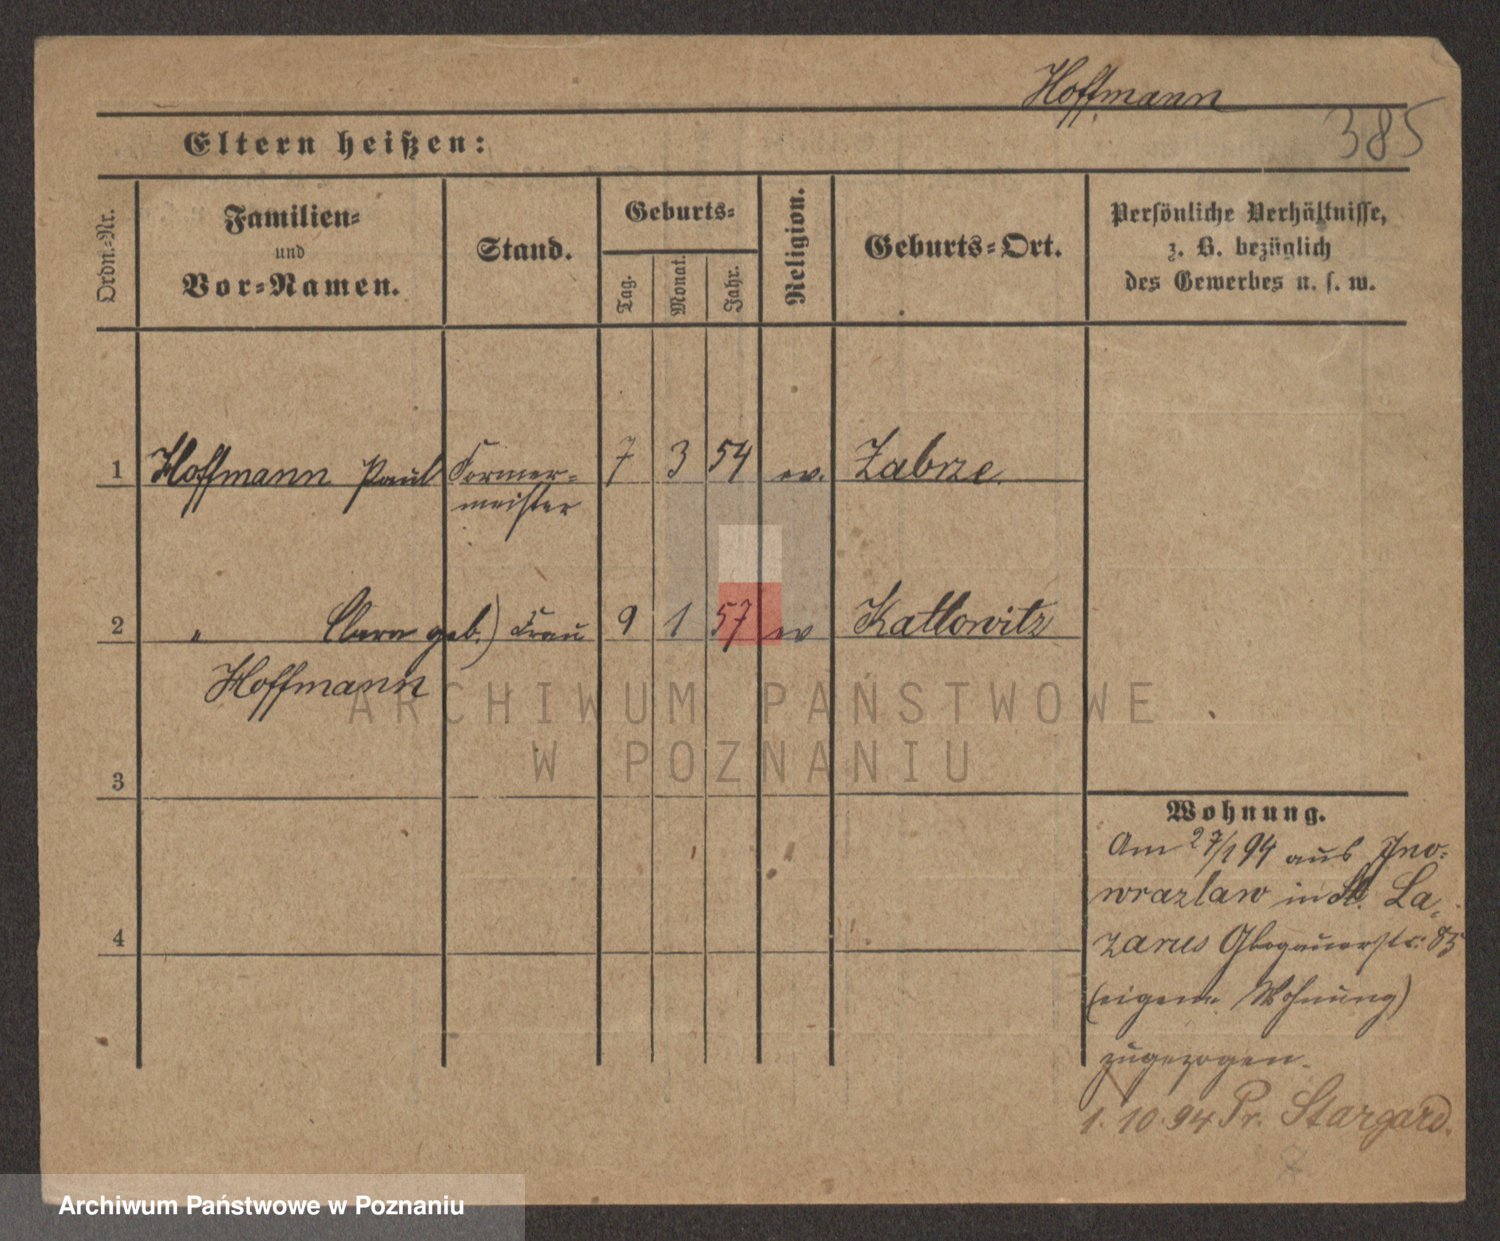 Hoffmann
385
Eltern heißen:
Ordn.-Nr.
Familien-
und
Vor-Namen.
Stand.
Geburts-
Tag.
Monat.
Jahr.
Religion.
Geburts-Ort.
Persönliche Verhältnisse,
z. B. bezüglich
des Gewerbes u. s. w.
1 Hoffmann Paul Former- 7 3 54 ev. Zabrze
meister
2 " Clara geb.) Frau 9 1 57 ev Kattowitz
Hoffmann
3
4
Wohnung.
Am 27/1 94 aus Ino-
wrazlaw in St. La-
zarus Glogauerstr. 85
(eigene Wohnung)
zugezogen.
1.10.94 Pr. Stargard.
ARCHIWUM PAŃSTWOWE
W POZNANIU
Archiwum Państwowe w Poznaniu